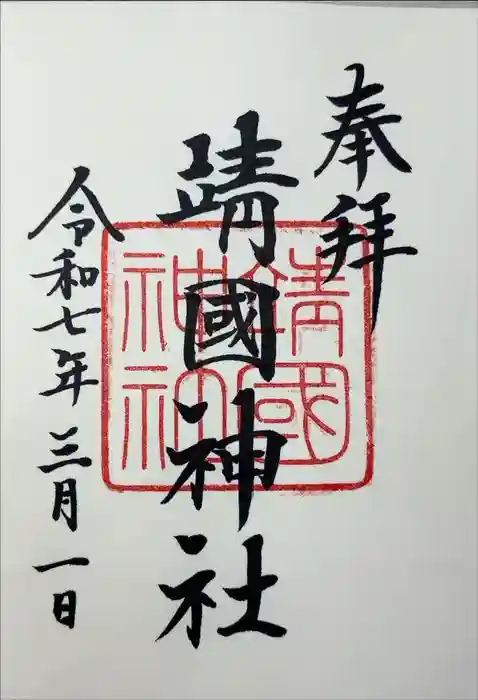 奉拝
靖國神社
靖國
神社
令和七年三月一日